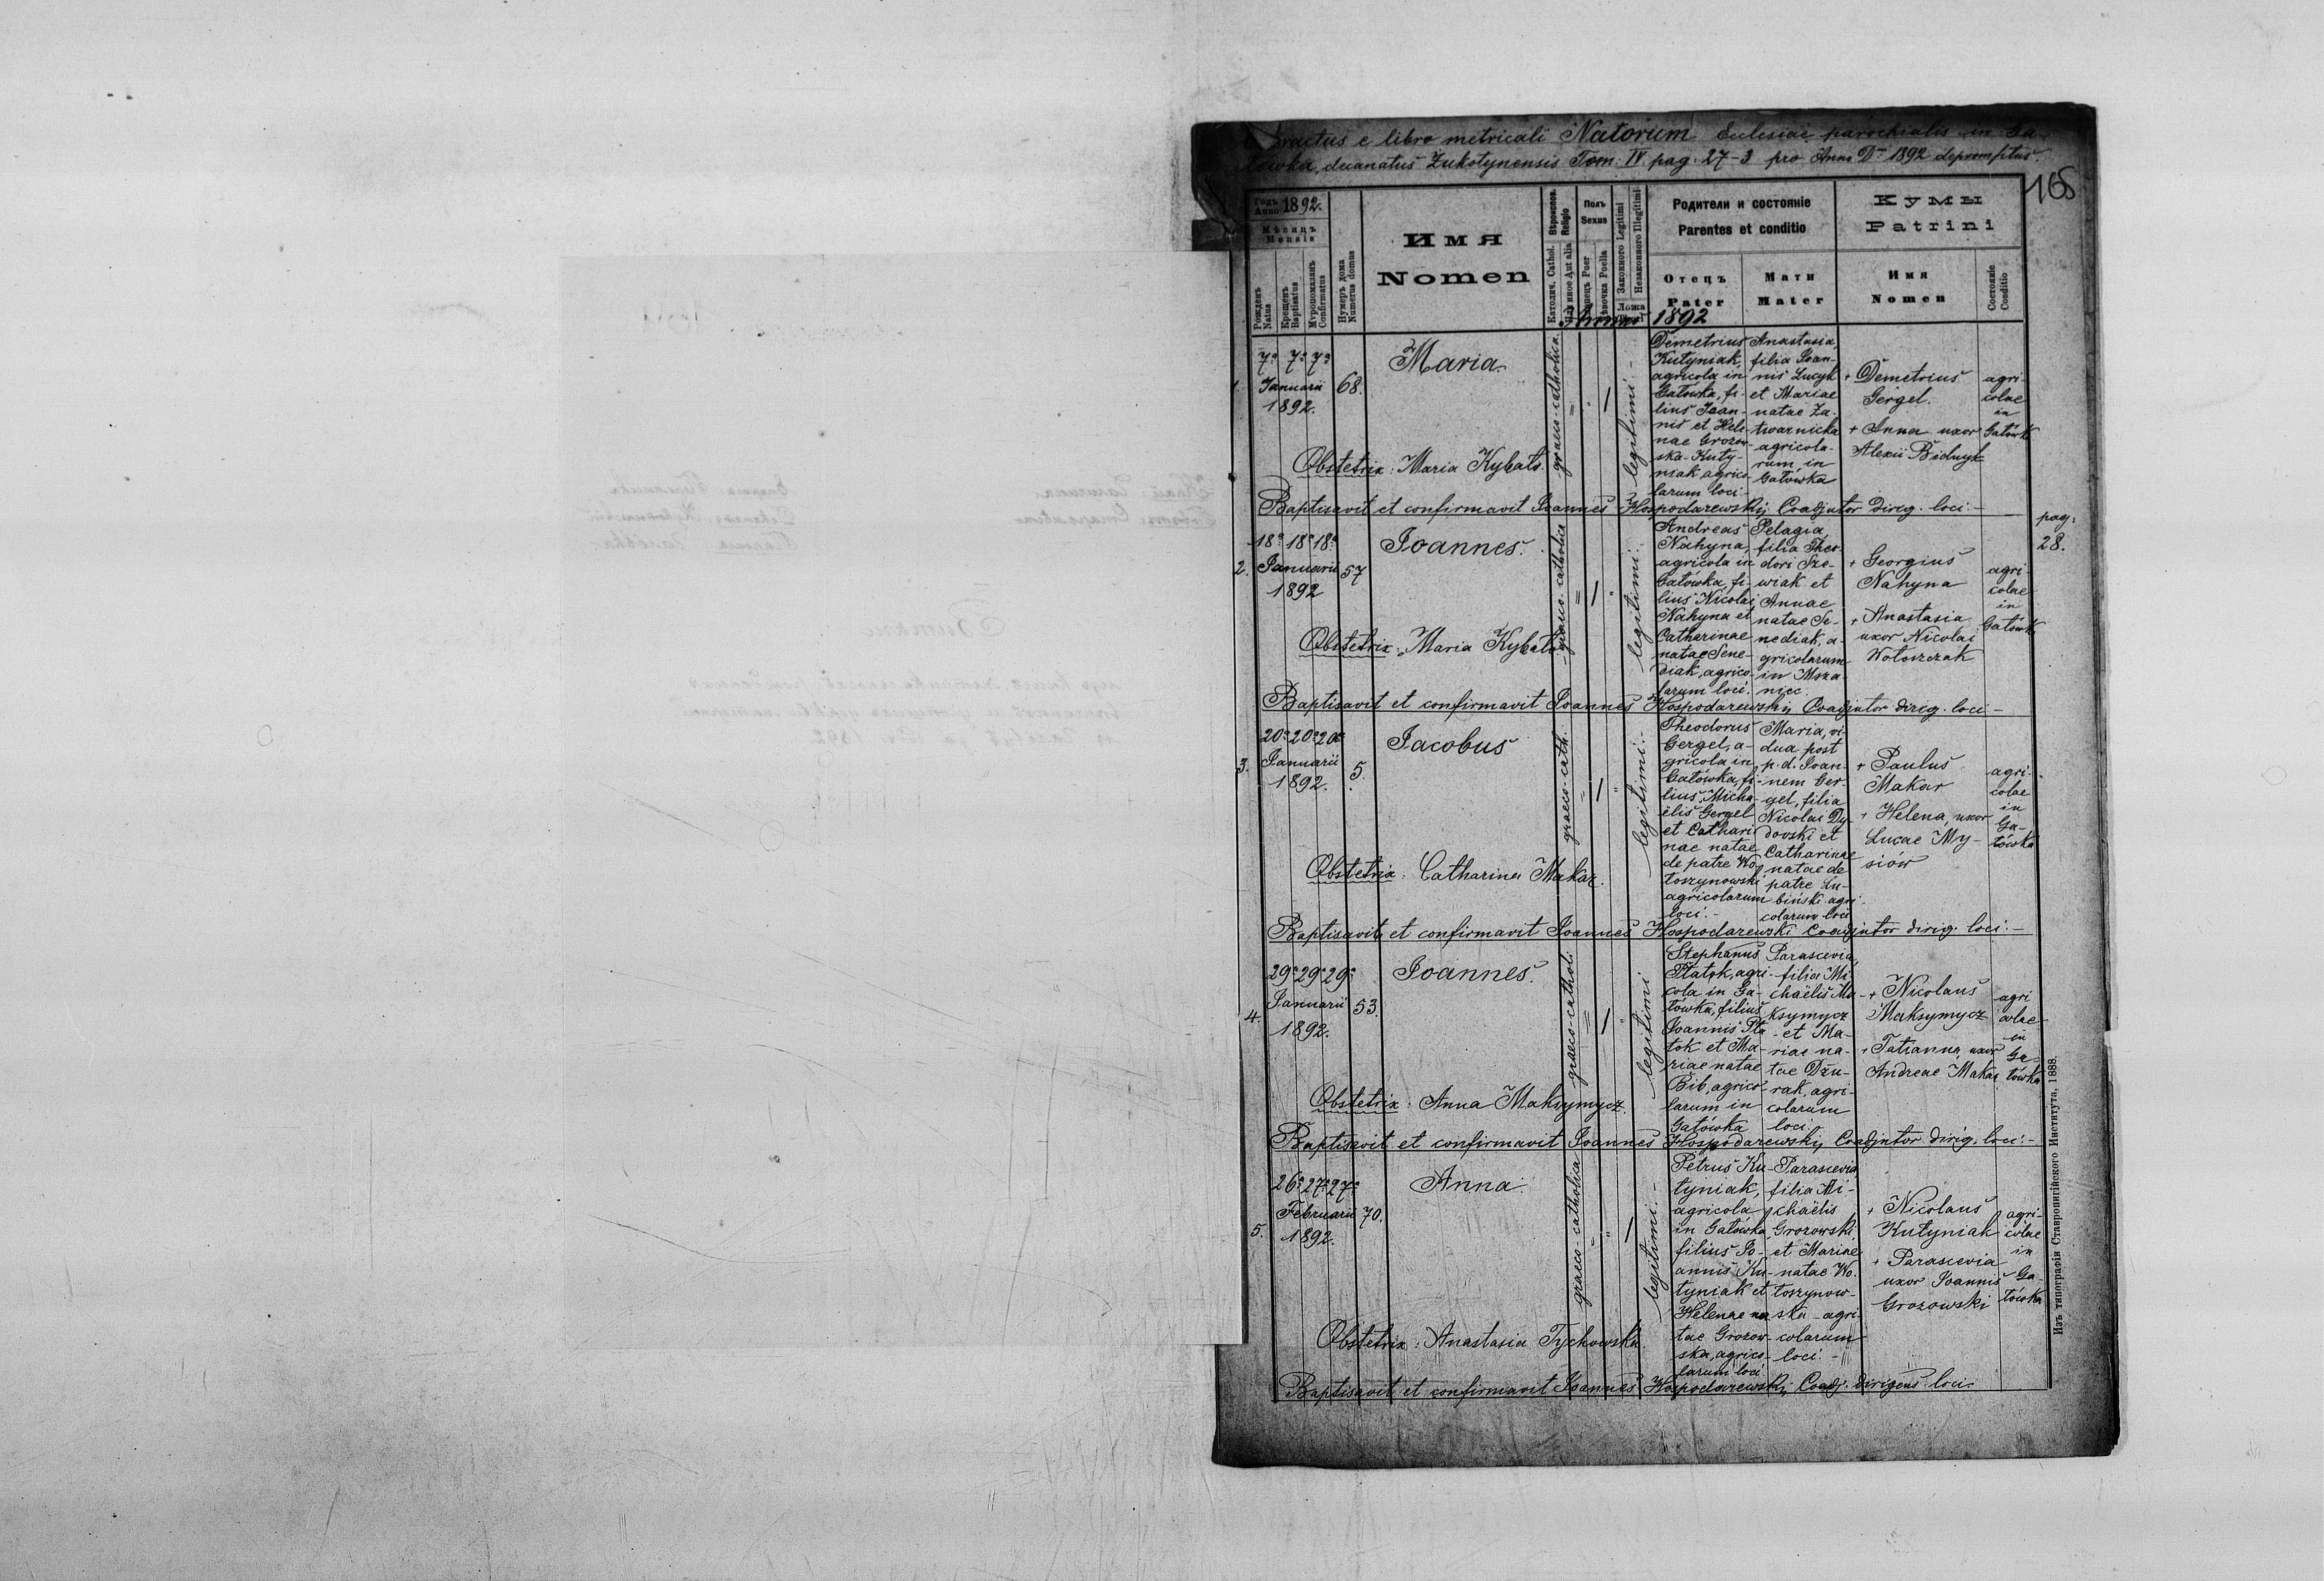 Extractus e libro metricali Natorum Ecclesiae parochialis in Ga-
łówka, decanatus Żukotynensis Tom: IV pag: 27-3 pro Anno Dni 1892 depromptus.
168
Годъ Anno 1892.
Мѣсяцъ
Mensis
Рожденъ Natus
Крещенъ Baptisatus
Мѵропомазанъ Confirmatus
Нумеръ дома Numerus domus
Имя
Nomen
Вѣроиспов. Religio
Католич. Cathol.
Иль иное Aut alia
Полъ
Sexus
Хлопецъ Puer
Дѣвочка Puella
Законного Legitimi
Незаконного Illegitimi
Ложа
Thori
Родители и состояніе
Parentes et conditio
Отецъ
Pater
Мати
Mater
Кумы
Patrini
Имя
Nomen
Состояніе
Conditio
Annus 1892
1.
7a 7a 7a
Januarii
1892.
68.
Maria.
graeco-catholica
legitimi.-
Demetrius
Kutyniak,
agricola in
Gałówka, fi-
lius Joan-
nis et Hele-
nae Grozow-
ska-Kuty-
niak agrico-
larum loci.-
Anastasia,
filia Joan-
nis Lucyk
et Mariae
natae Za-
twarnicka
agricola-
rum in
Gałówka
+ Demetrius
Gergel.
+ Anna uxor
Alexii Bidnyk
agri-
colae
in
Gałówk
Obstetrix: Maria Kybalo.
Baptisavit et confirmavit Joannes Hospodarewskij Coadjutor dirig. loci.-
pag:
28.
2.
18a 18a 18a
Januarii
1892
57
Joannes.
graeco-catholica
legitimi.-
Andreas
Nahyna,
agricola in
Gałówka, fi-
lius Nicolai
Nahyna et
Catharinae
natae Sene-
diak, agrico-
larum loci.
Pelagia,
filia Theo-
dori Sze-
wiak et
Annae
natae Se-
nediak, a-
gricolarum
in Msza-
niec.
+ Georgius
Nahyna
+ Anastasia
uxor Nicolai
Wołoszczak
agri-
colae
in
Gałówk
Obstetrix: Maria Kybalo
Baptisavit et confirmavit Joannes Hospodarewskij Coadjutor dirig. loci.-
3.
20a 20a 20a
Januarii
1892.
5.
Jacobus
graeco-cath.
legitimi.-
Theodorus
Gergel, a-
gricola in
Gałówka, fi-
lius Micha-
ëlis Gergel
et Cathari-
nae natae
de patre Wo-
łoszynowski
agricolarum
loci.-
Maria, vi-
dua post
p. d. Joan-
nem Ger-
gel, filia
Nicolai Dy-
dovski et
Catharinae
natae de
patre Lu-
biński agri-
colarum loci
+ Paulus
Makar
+ Helena, uxor
Lucae My-
siów
agri-
colae
in
Ga-
łówka
Obstetrix: Catharina Makar.
Baptisavit et confirmavit Joannes Hospodarewski Coadjutor dirig. loci.-
4.
29a 29a 29a
Januarii
1892.
53.
Joannes.
graeco-catholi
legitimi
Stephanus
Płatok, agri-
cola in Ga-
łówka, filius
Joannis Pła-
tok et Ma-
riae natae
Bib, agrico-
larum in
Gałówka
Parascevia,
filia Mi-
chaëlis Ma-
ksymycz
et Ma-
riae na-
tae Dżu-
rak, agri-
colarum
loci.-
+ Nicolaus
Maksymycz
+ Tatianna, uxor
Andreae Makar
agri
colae
in
Ga-
łówka
Obstetrix: Anna Maksymycz.
Baptisavit et confirmavit Joannes Hospodarewskij Coadjutor dirig. loci.-
5.
26a 27a 27a
Februarii
1892.
70.
Anna.
graeco-catholica
legitimi.-
Petrus Ku-
tyniak,
agricola
in Gałówka
filius Jo-
annis Ku-
tyniak et
Helenae na-
tae Grozow-
ska, agrico-
larum loci
Parascevia
filia Mi-
chaëlis
Grozowski
et Mariae
natae Wo-
łoszynow-
ska - agri-
colarum
loci.-
+ Nicolaus
Kutyniak
+ Parascevia
uxor Joannis
Grozowski
agri-
colae
in
Ga-
łówka
Obstetrix: Anastasia Tychowska.
Baptisavit et confirmavit Joannes Hospodarewskij Coadj. dirigens loci
Изъ типографіи Ставропигійского Института, 1888.